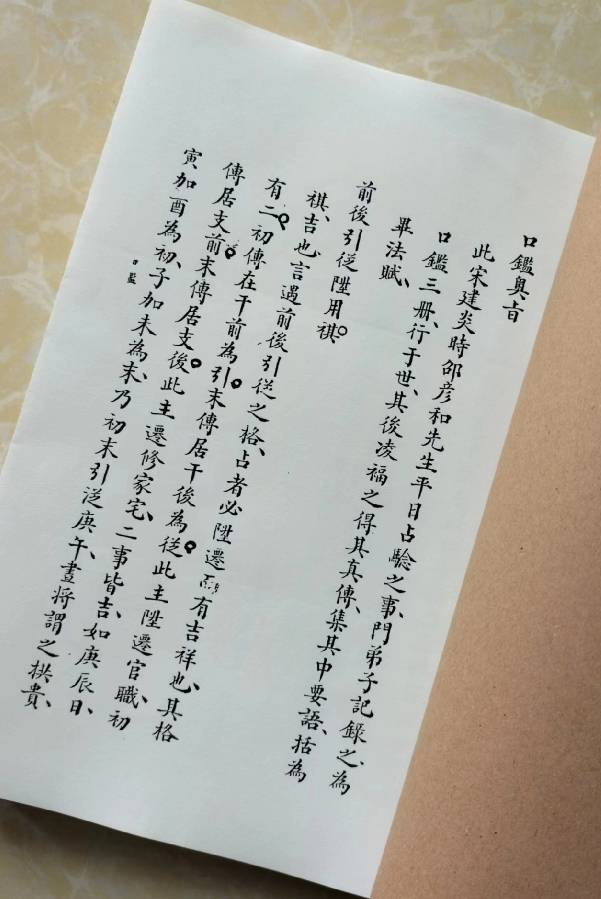 口鑑奧旨
此宋建炎時邵彥和先生平日占驗之事、門弟子記錄之、為
口鑑三册、行于世、其後凌福之得其真傳、集其中要語、括為
畢法賦、
前後引從陞用祺。
祺、吉也、言遇前後引從之格、占者必陞遷有吉祥也、其格
有二。初傳在干前為引。末傳居干後為從。此主陞遷官職、初
傳居支前。末傳居支後。此主遷修家宅、二事皆吉、如庚辰日、
寅加酉為初、子加未為末、乃初末引從庚午、晝將謂之拱貴、
口鑑